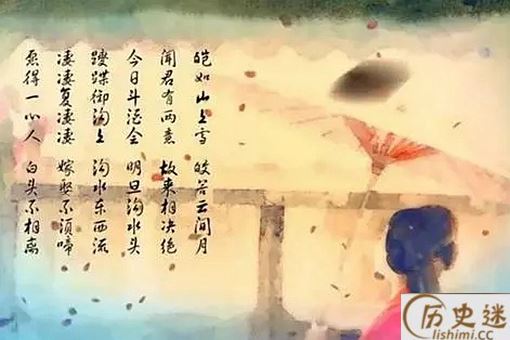 皑如山上雪 皎若云间月
闻君有两意 故来相决绝
今日斗酒会 明旦沟水头
躞蹀御沟上 沟水东西流
凄凄复凄凄 嫁娶不须啼
愿得一心人 白头不相离
历史迷
lishimi.cc